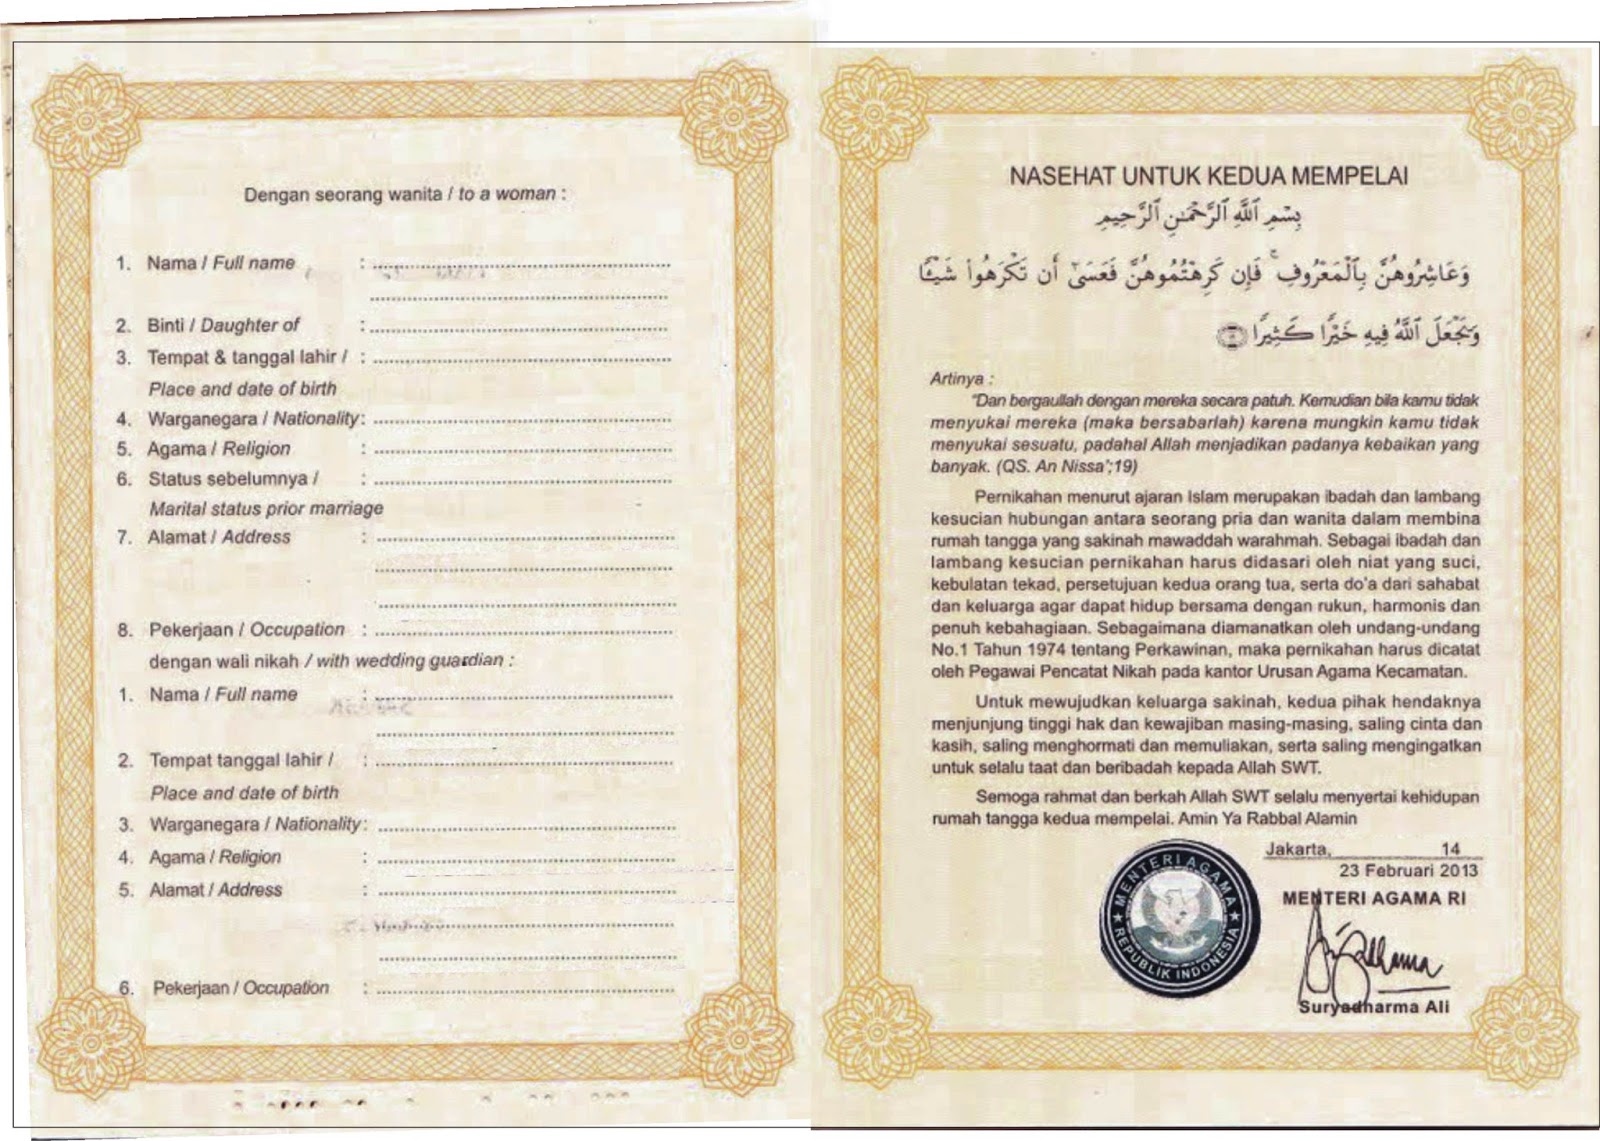 Dengan seorang wanita / to a woman :
1. Nama / Full name :
2. Binti / Daughter of :
3. Tempat & tanggal lahir / :
Place and date of birth
4. Warganegara / Nationality :
5. Agama / Religion :
6. Status sebelumnya / :
Marital status prior marriage
7. Alamat / Address :
8. Pekerjaan / Occupation :
dengan wali nikah / with wedding guardian :
1. Nama / Full name :
2. Tempat tanggal lahir / :
Place and date of birth
3. Warganegara / Nationality :
4. Agama / Religion :
5. Alamat / Address :
6. Pekerjaan / Occupation :
NASEHAT UNTUK KEDUA MEMPELAI
بِسْمِ ٱللَّهِ ٱلرَّحْمَٰنِ ٱلرَّحِيمِ
وَعَاشِرُوهُنَّ بِٱلْمَعْرُوفِ ۚ فَإِن كَرِهْتُمُوهُنَّ فَعَسَىٰٓ أَن تَكْرَهُوا۟ شَيْـًٔا
وَيَجْعَلَ ٱللَّهُ فِيهِ خَيْرًا كَثِيرًا
Artinya :
"Dan bergaullah dengan mereka secara patuh. Kemudian bila kamu tidak
menyukai mereka (maka bersabarlah) karena mungkin kamu tidak
menyukai sesuatu, padahal Allah menjadikan padanya kebaikan yang
banyak. (QS. An Nissa';19)
Pernikahan menurut ajaran Islam merupakan ibadah dan lambang
kesucian hubungan antara seorang pria dan wanita dalam membina
rumah tangga yang sakinah mawaddah warahmah. Sebagai ibadah dan
lambang kesucian pernikahan harus didasari oleh niat yang suci,
kebulatan tekad, persetujuan kedua orang tua, serta do'a dari sahabat
dan keluarga agar dapat hidup bersama dengan rukun, harmonis dan
penuh kebahagiaan. Sebagaimana diamanatkan oleh undang-undang
No.1 Tahun 1974 tentang Perkawinan, maka pernikahan harus dicatat
oleh Pegawai Pencatat Nikah pada kantor Urusan Agama Kecamatan.
Untuk mewujudkan keluarga sakinah, kedua pihak hendaknya
menjunjung tinggi hak dan kewajiban masing-masing, saling cinta dan
kasih, saling menghormati dan memuliakan, serta saling mengingatkan
untuk selalu taat dan beribadah kepada Allah SWT.
Semoga rahmat dan berkah Allah SWT selalu menyertai kehidupan
rumah tangga kedua mempelai. Amin Ya Rabbal Alamin
Jakarta, 14
23 Februari 2013
MENTERI AGAMA RI
MENTERI AGAMA
REPUBLIK INDONESIA
Suryadharma Ali